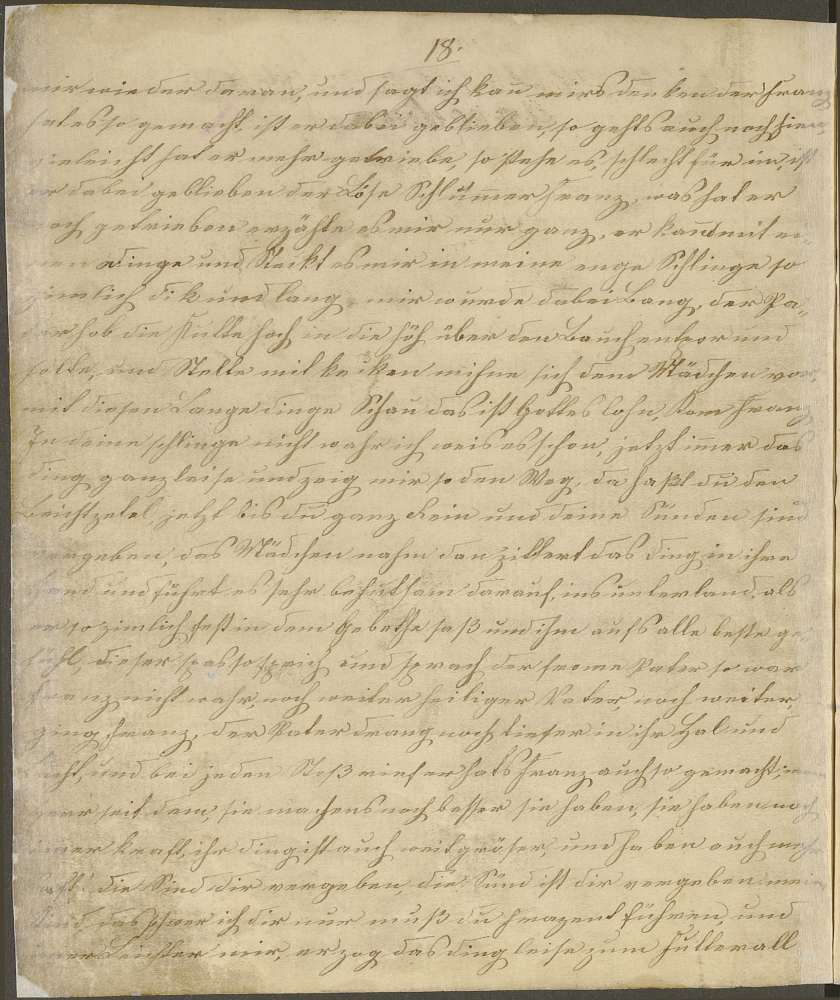 18.
mir wieder daran, und sagt ich kan mirs denken der Franz
hat es so gemacht, ist er dabei geblieben, so gehts auch noch hien,
vieleicht hat er mehr getriebe, so stehe es, schlecht für im, ist
er dabei geblieben der Löse Schlümmer Franz, was hat er
noch getrieben erzähle es mir nur ganz, er kamt mit ei-
nen dinge und Steckt es mir in meine enge Schlinge so
zimlich dik und lang, mir wurde dabei Bang, der Pa-
der hob die kutte hoch in die höh über den Bauch enbor und
stelte, und Stelte mit kecken mihne sich dem Mädchen vor,
mit diesen Lange dinge Schau das ist Gottes lohn, kam Franz
In deine schlinge nicht wahr ich weis es schon, jetzt immer das
ding ganz leise und zeig mir so den Weg, da hast du den
Beichtzetel jetzt bis du ganz Rein und deine Sünden sind
vergeben, das Mädchen nahm dan zittert das ding in ihre
Hand und führt es sehr behutsam darauf, ins unterland, als
er so zimlich fest in dem Gebethe saß und ihm aufs alle beste ge-
fühl, dieser spas so sprich und sprach der frome Pater so war
Franz nicht wahr, noch weiter heiliger Pater, noch weiter,
ging Franz, der Pater drang noch tiefer in ihr Hal und
und bei jeden Stoß rief er hats Franz auch so gemacht,
seit dem, sie machens noch besser sie haben, sie haben noch
mer kraft, ihr ding ist auch weit gröser, und haben auch mehr
saft, die Sünd dir vergeben, die Sünd ist dir vergeben mein
Kind, das schwer ich dir nur muß du führen, und
mir, er zog das ding leise zum Futterall